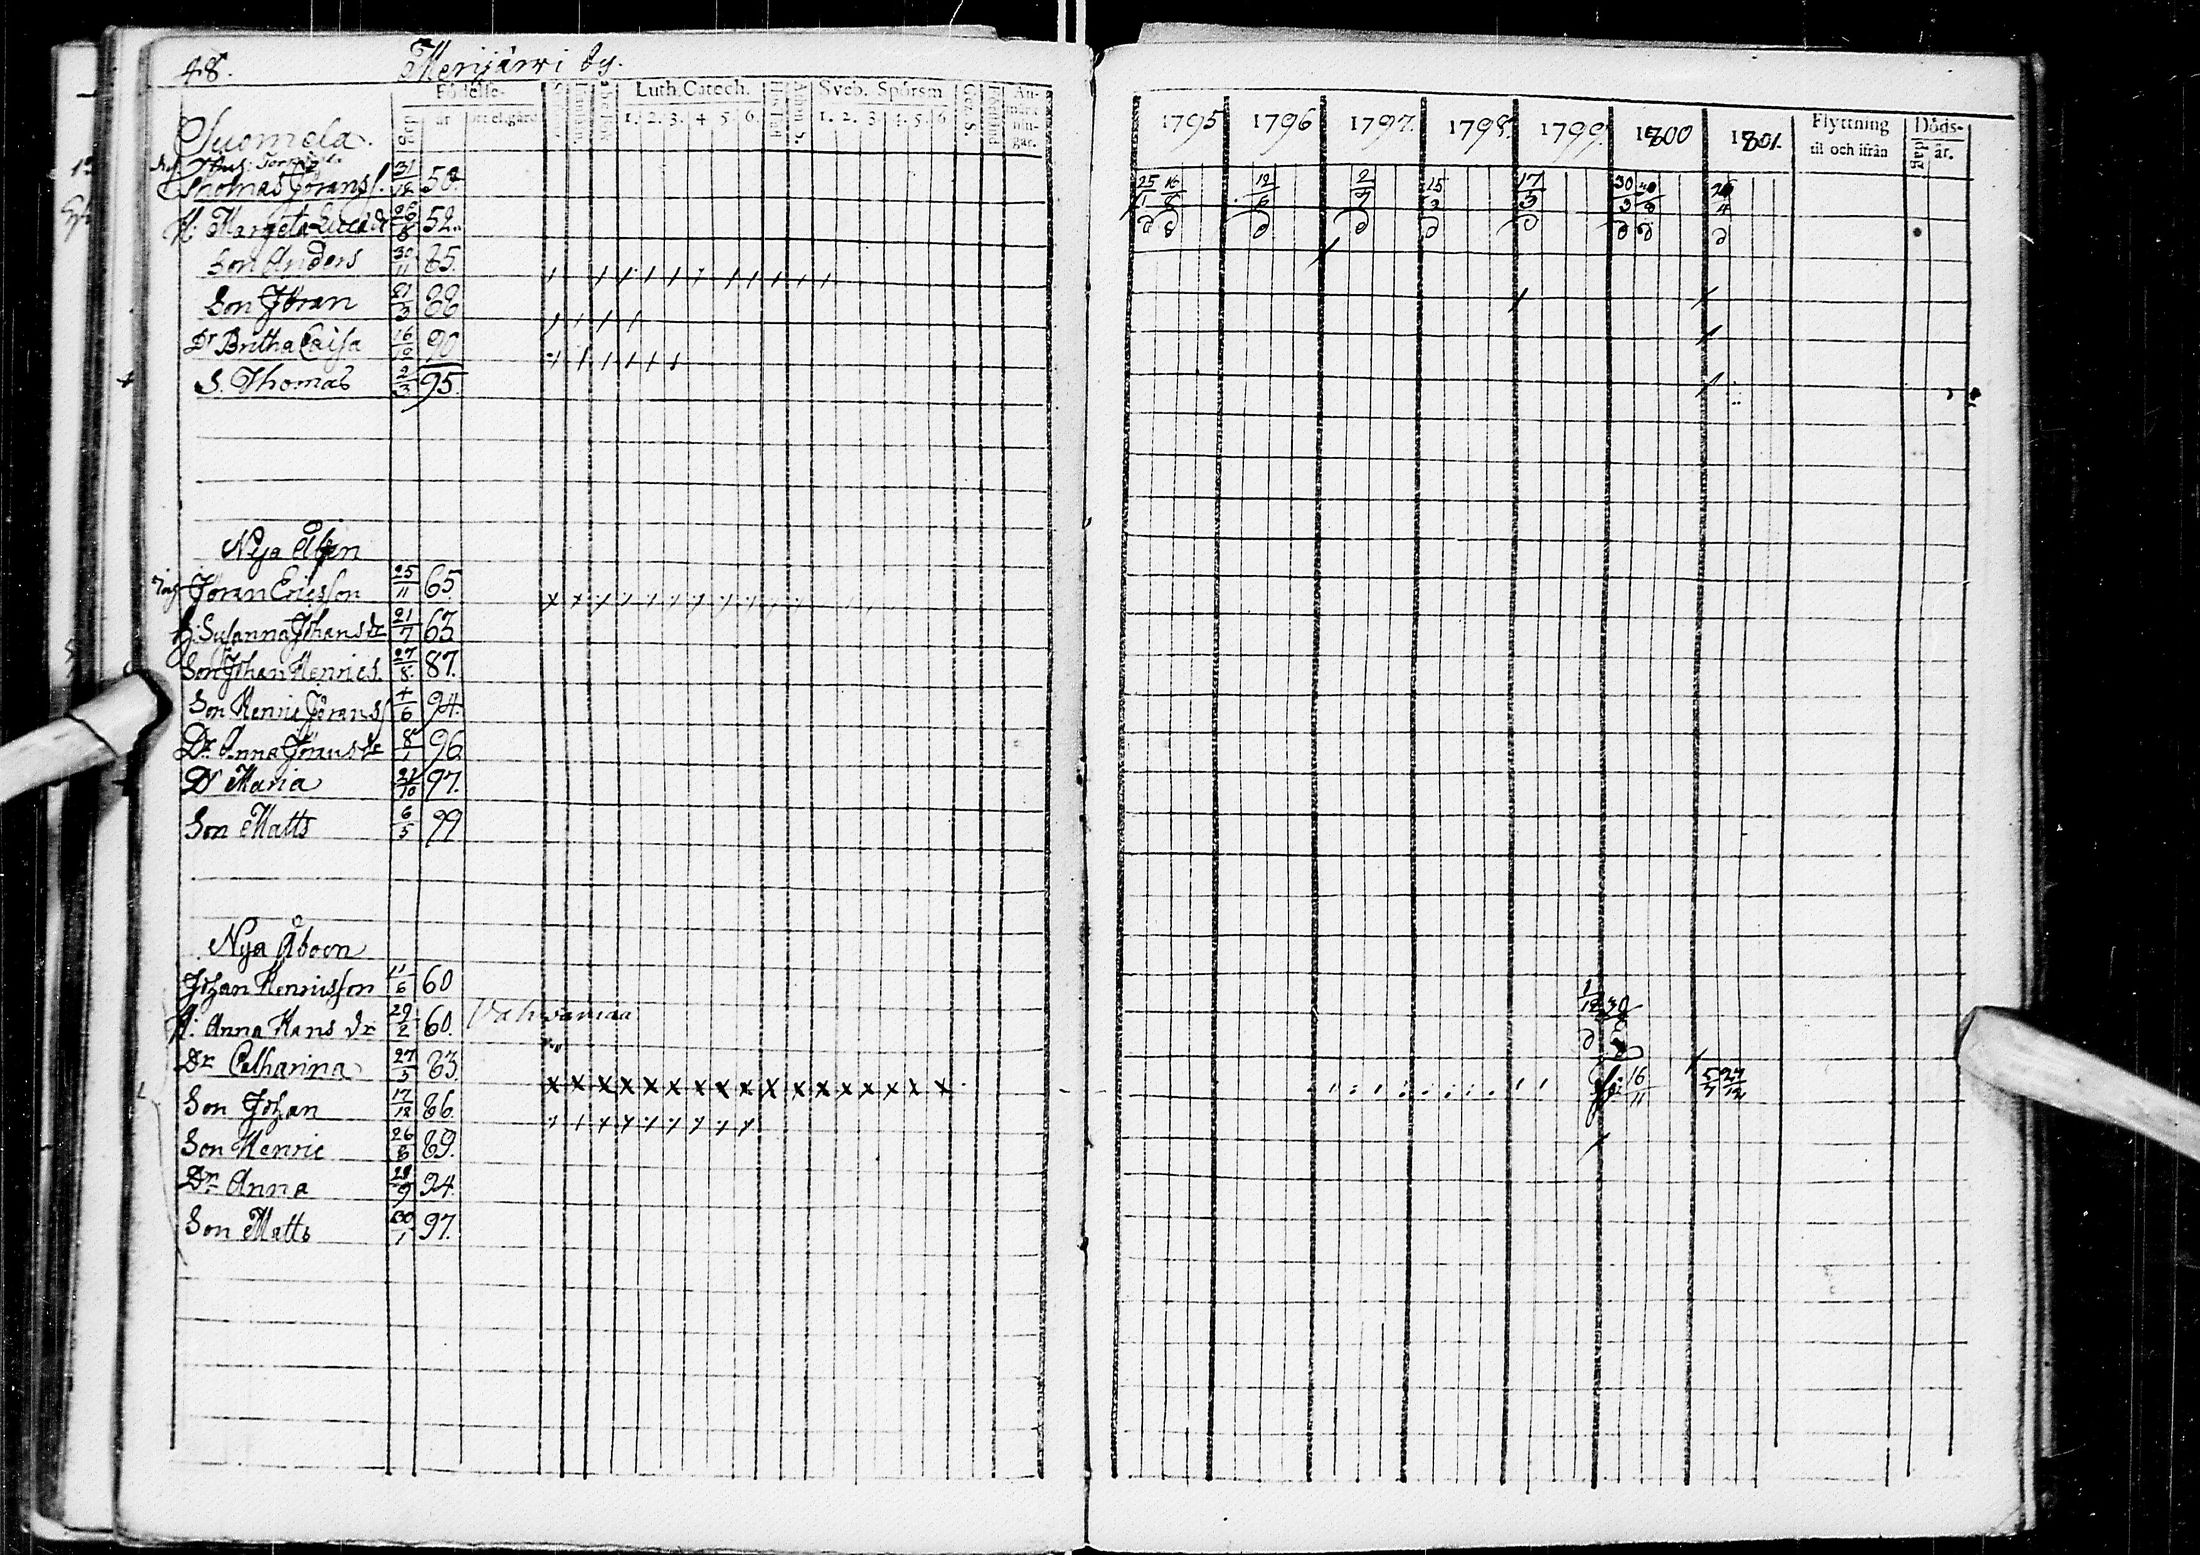 48. Merijärwi by.
Födelse- Luth. Catech. Sveb. Spörsm
år 1. 2. 3. 4. 5. 6. 1. 2. 3. 4. 5. 6
1795 1796 1797. 1798. 1799. 1800 1801. Flyttning til och ifrån Döds- dag år.
Suomela.
Thomas Jöranss. 31/12 50.
25/1 16/8 12/6 2/7 15/3 17/3 30/3 4
H: Margeta 52.
Son Anders 30/11 85.
Son Jöran 21/3 88
Dr Britha Caisa 16/12 90
S. Thomas 2/3 95.
Nya Åbon
Jöran Ericsson 25/11 65.
H: Susanna Johans dr 21/7 63
Son Johan Henrics. 27/8 87.
Son Henric Jöranss 4/6 94.
Dr Anna Jörans dr 8/1 96
Dr Maria 21/10 97.
Son Matts 6/5 99
Nya Åboon
Johan Henricsson 11/6 60
H: Anna Hans dr 29/2 60.
Dr Catharina 27/5 83.
16/11 5/7
Son Johan 17/12 86.
Son Henric 26/8 89.
Dr Anna 29/9 94.
Son Matts 30/1 97.